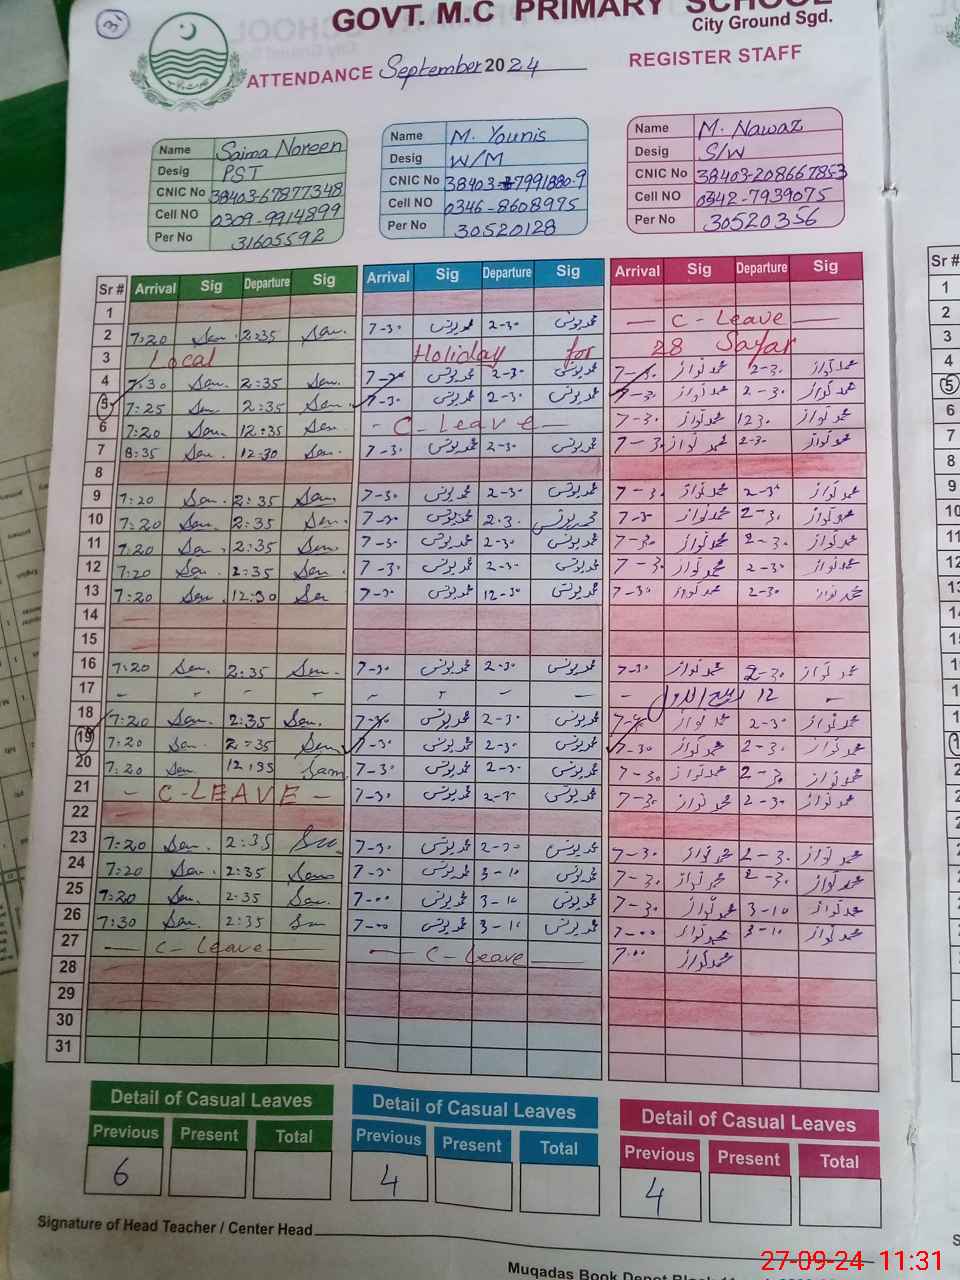 31
GOVT. M.C PRIMARY SCHOOL
City Ground Sgd.
ATTENDANCE September 2024 REGISTER STAFF
Name Saima Noreen
Desig PST
CNIC No 38403-67877348
Cell NO 0309-9914899
Per No 31605592
Name M. Younis
Desig W/M
CNIC No 38403-7991880-9
Cell NO 0346-8608975
Per No 30520128
Name M. Nawaz
Desig S/W
CNIC No 38403-208667853
Cell NO 0342-7939075
Per No 30520356
Sr # Arrival Sig Departure Sig Arrival Sig Departure Sig Arrival Sig Departure Sig
1
2 7:20 Sam. 2:35 Sam. 7-30 محمد یونس 2-30 محمد یونس — C-Leave —
3 Local Holiday for 28 Safar
4 7:30 Sam. 2:35 Sam. 7-30 محمد یونس 2-30 محمد یونس 7-30 محمد نواز 2-30 محمد نواز
5 7:25 Sam 2:35 Sam 7-30 محمد یونس 2-30 محمد یونس 7-30 محمد نواز 2-30 محمد نواز
6 7:20 Sam 12:35 Sam - C-Leave — 7-30 محمد نواز 1230 محمد نواز
7 8:35 Sam. 12:30 Sam. 7-30 محمد یونس 2-30 محمد یونس 7-30 محمد نواز 2-30 محمد نواز
8
9 7:20 Sam. 2:35 Sam 7-30 محمد یونس 2-30 محمد یونس 7-30 محمد نواز 2-30 محمد نواز
10 7:20 Sam. 2:35 Sam. 7-30 محمد یونس 2-30 محمد یونس 7-30 محمد نواز 2-30 محمد نواز
11 7:20 Sam. 2:35 Sam 7-30 محمد یونس 2-30 محمد یونس 7-30 محمد نواز 2-30 محمد نواز
12 7:20 Sam. 2:35 Sam. 7-30 محمد یونس 2-30 محمد یونس 7-30 محمد نواز 2-30 محمد نواز
13 7:20 Sam. 12:30 Sam 7-30 محمد یونس 12-30 محمد یونس 7-30 محمد نواز 2-30 محمد نواز
14
15
16 7:20 Sam. 2:35 Sam. 7-30 محمد یونس 2-30 محمد یونس 7-30 محمد نواز 2-30 محمد نواز
17 - - - - - - - - - 12 ربیع الاول -
18 7:20 Sam. 2:35 Sam. 7-30 محمد یونس 2-30 محمد یونس 7-30 محمد نواز 2-30 محمد نواز
19 7:20 Sam. 2:35 Sam 7-30 محمد یونس 2-30 محمد یونس 7-30 محمد نواز 2-30 محمد نواز
20 7:20 Sam 12:35 Sam 7-30 محمد یونس 2-30 محمد یونس 7-30 محمد نواز 2-30 محمد نواز
21 - C-LEAVE - 7-30 محمد یونس 2-30 محمد یونس 7-30 محمد نواز 2-30 محمد نواز
22
23 7:20 Sam. 2:35 Sam 7-30 محمد یونس 2-30 محمد یونس 7-30 محمد نواز 2-30 محمد نواز
24 7:20 Sam. 2:35 Sam 7-30 محمد یونس 3-10 محمد یونس 7-30 محمد نواز 2-30 محمد نواز
25 7:20 Sam. 2:35 Sam. 7-00 محمد یونس 3-10 محمد یونس 7-30 محمد نواز 3-10 محمد نواز
26 7:30 Sam. 2:35 Sam 7-00 محمد یونس 3-10 محمد یونس 7-00 محمد نواز 3-10 محمد نواز
27 — C-Leave — — C-Leave — 7:00 محمد نواز
28
29
30
31
Detail of Casual Leaves Detail of Casual Leaves Detail of Casual Leaves
Previous Present Total Previous Present Total Previous Present Total
6 4 4
Signature of Head Teacher / Center Head
Muqadas Book Depot
27-09-24 11:31